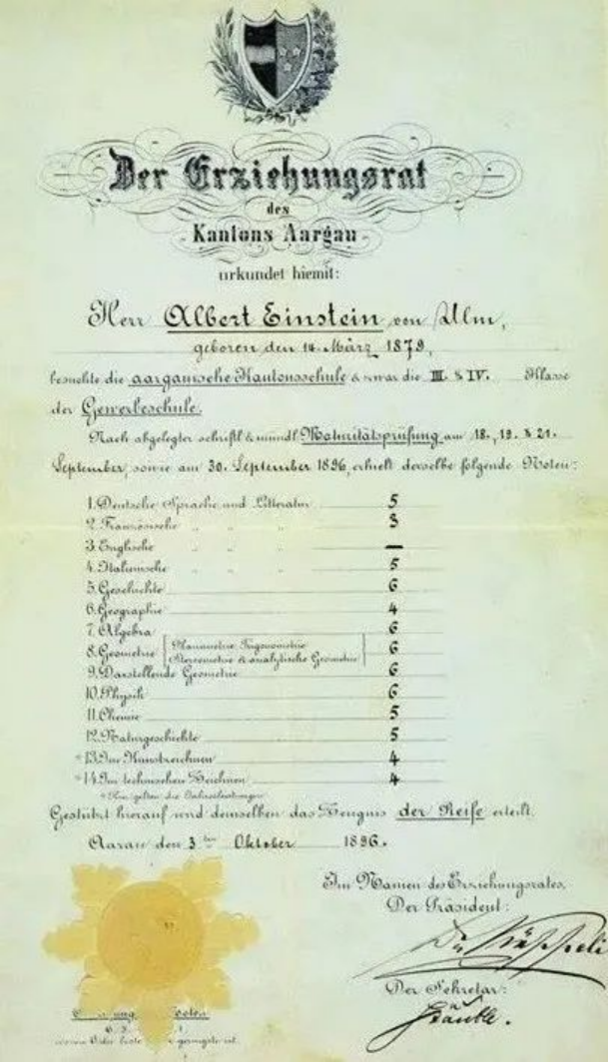 Der Erziehungsrat
des
Kantons Aargau
urkundet hiemit:
Herr Albert Einstein von Ulm,
geboren den 14. März 1879,
besuchte die aargauische Kantonsschule & zwar die III. & IV. Klasse
der Gewerbeschule.
Nach abgelegter schriftl. & mündl. Maturitätsprüfung am 18., 19. & 21.
September, sowie am 30. September 1896, erhielt derselbe folgende Noten:
1. Deutsche Sprache und Litteratur 5
2. Französische " " " 3
3. Englische " " " —
4. Italienische " " " 5
5. Geschichte 6
6. Geographie 4
7. Algebra 6
8. Geometrie { Planimetrie, Trigonometrie
Stereometrie & analytische Geometrie } 6
9. Darstellende Geometrie 6
10. Physik 6
11. Chemie 5
12. Naturgeschichte 5
* 13. Im Kunstzeichnen 4
* 14. Im technischen Zeichnen 4
* Hier gelten die Jahresleistungen.
Gestützt hierauf wird demselben das Zeugnis der Reife erteilt.
Aarau den 3ten Oktober 1896.
Im Namen des Erziehungsrates,
Der Präsident:
Der Sekretär: